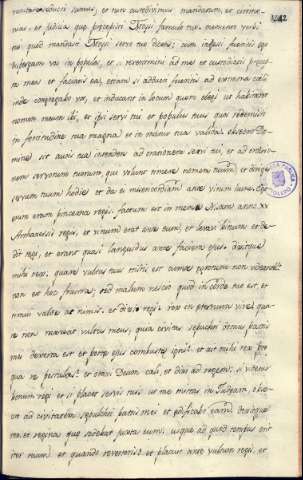 vanitate seducti sumus, et non custodivimus mandatum, et cerimo
nias, et judicia que precepisti Moysi famulo tuo. memento verbi
tui quod mandasti Moysi servo tuo dicens; cum fueritis ego
dispergam vos in populos, et si revertimini ad me et custodiatis precep
ta mea et faciatis ea, etiam si adducti fueritis ad extrema celi
inde congregabo vos, et inducam in locum quem elegi ut habitaret
nomen meum ibi, et ipsi servi tui et populus tuus quos redemisti
in fortitudine tua magna et in manu tua valida. obsecro Do
mine sit auris tua intendens ad orationem servi tui, et ad oratio
nem servorum tuorum, qui volunt timere nomen tuum, et dirige
servum tuum hodie et da ei misericordiam ante virum hunc. Ego
enim eram pincerna regis. factum est in mense Nisan anno xx
regis, et vinum erat ante eum, et levavi vinum et de
di regi, et eram quasi languidus ante faciem ejus. dixitque
mihi rex, quare vultus tuus tristis est cum te egrotum non videam?
non est hoc frustra; sed malum nescio quod in corde tuo est, et
timui valde ac nimis, et dixi regi. rex in eternum vive, qua
re non mereat vultus meus, quia civitas sepulchri domus patris
mei deserta est et porte ejus combuste igni? et ait mihi rex pro
qua re postulas? et oravi Deum celi, et dixi ad regem, si videtur
bonum regi et si placet servus tuus ut me mittas in Judeam, obse
cro ad civitatem sepulchri patris mei et edificabo eam. dixitque
rex et regina que sedebat juxta eum; usque ad quod tempus erit
iter tuum et quando reverteris? et placuit ante vultum regis, et